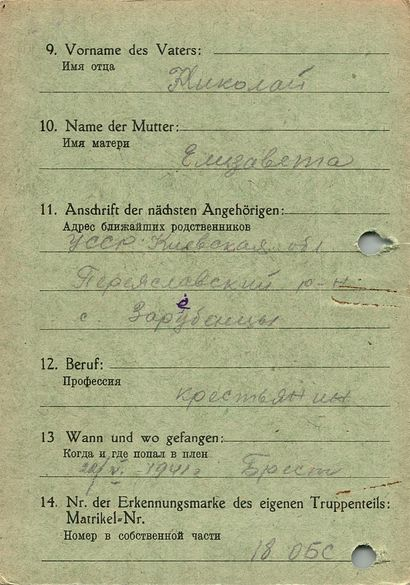 9. Vorname des Vaters:
Имя отца
Николай
10. Name der Mutter:
Имя матери
Елизавета
11. Anschrift der nächsten Angehörigen:
Адрес ближайших родственников
УССР. Киевская обл
Переяславский р-н
с Зарубенцы
12. Beruf:
Профессия
крестьянин
13 Wann und wo gefangen:
Когда и где попал в плен
1941г Брест
14. Nr. der Erkennungsmarke des eigenen Truppenteils:
Matrikel-Nr.
Номер в собственной части
18 ОБС